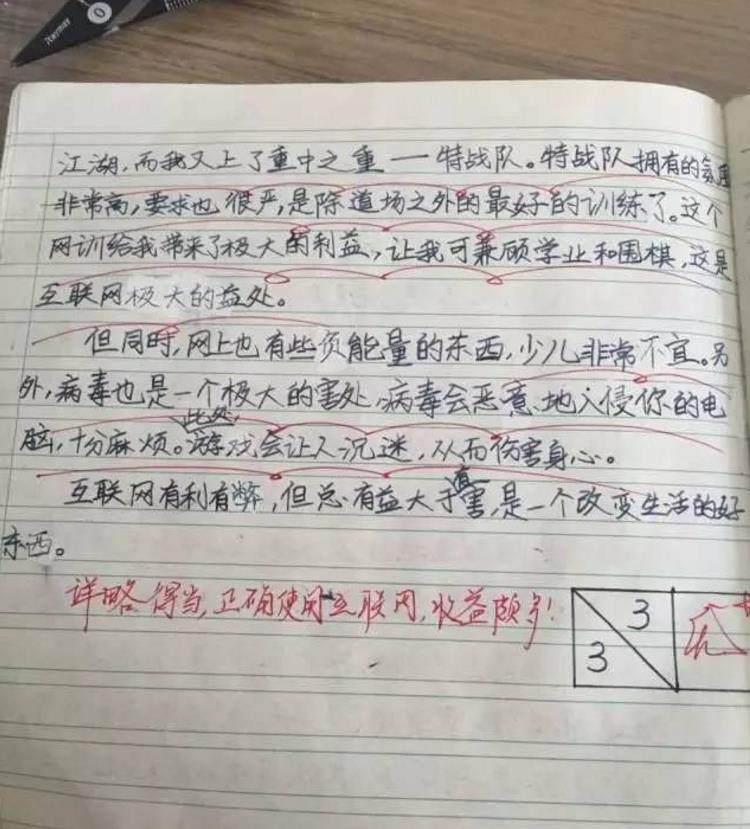 江湖,而我又上了重中之重——特战队。特战队拥有的氛围
非常高,要求也很严,是除道场之外的最好的训练了。这个
网训给我带来了极大的利益,让我可兼顾学业和围棋,这是
互联网极大的益处。
但同时,网上也有些负能量的东西,少儿非常不宜。另
外,病毒也是一个极大的害处,病毒会恶意地入侵你的电
脑,十分麻烦。此处游戏会让人沉迷,从而伤害身心。
互联网有利有弊,但总有益大于害,是一个改变生活的好
东西。
详略得当,正确使用互联网,收益颇多!
3
3